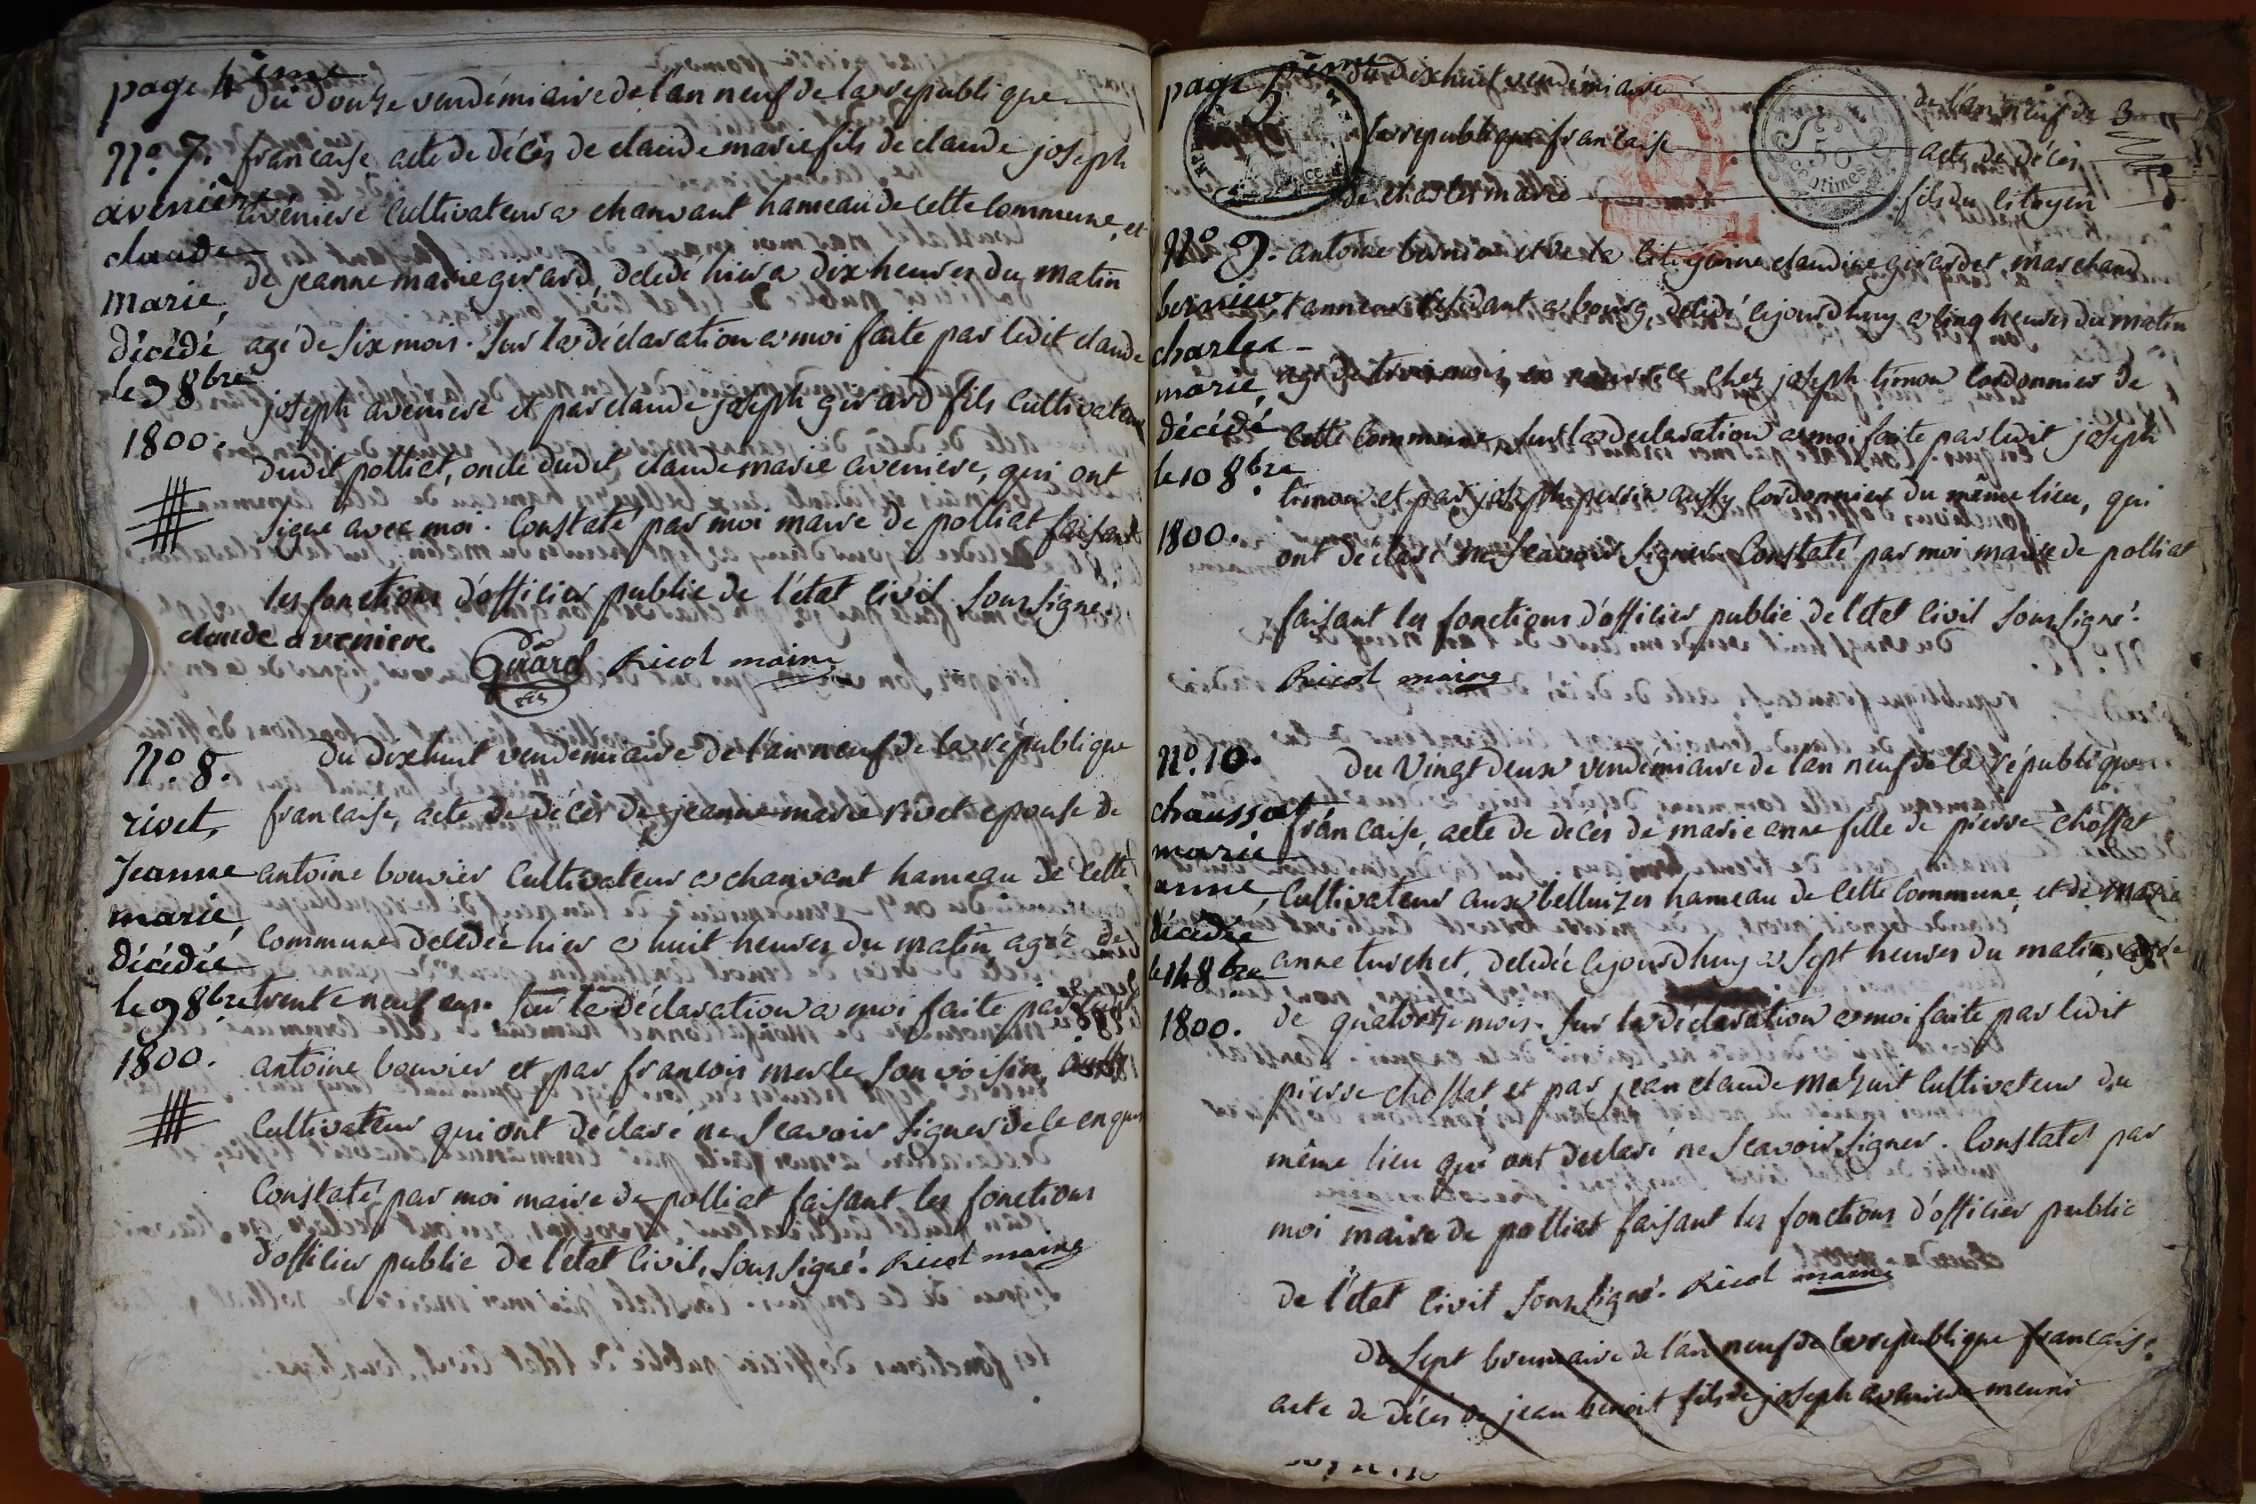 page 4ème
du douze vendémiaire de l'an neuf de la republique
N.° 7. francaise, acte de décès de claude marie fils de claude joseph
avenière aveniere cultivateur a chanvant hameau de cette commune, et
claude de jeanne marie girard, décédé hier a dix heures du matin
marie,
décédé agé de six mois. Sur la déclaration a moi faite par ledit claude
le 3 8bre joseph aveniere et par claude joseph girard fils cultivateur
1800. dudit polliat, oncle dudit claude marie aveniere, qui ont
signé avec moi. Constaté par moi maire de polliat faisant
les fonctions d'officier public de l'état civil soussigné.
claude aveniere Girard fils Ricol maire
N.° 8. du dixhuit vendemiaire de l'an neuf de la république
rivet, francaise, acte de décès de jeanne marie rivet epouse de
Jeanne antoine bouvier cultivateur a chanvant hameau de cette
marie,
décédée commune décédée hier a huit heures du matin agée de
le 9 8bre trente neuf ans. Sur la déclaration a moi faite par ledit
1800. antoine bouvier et par francois merle son voisin, aussi
cultivateur qui ont déclaré ne scavoir signer de ce enquis
Constaté par moi maire de polliat faisant les fonctions
d'officier public de l'état civil, soussigné. Ricol maire
page 5ème du dixhuit vendémiaire de l'an neuf de 3
la republique francaise acte de décès
50 centimes
de charles marie fils du citoyen
N.° 9. antoine bernier et de la citoyenne claudine girardet marchand
bernier tanneur résidant a bourg, décédé cejourdhuy a cinq heures du matin
charles
marie, agé de trois mois, en nourrice chez joseph timon cordonnier de
décédé cette commune, sur la declaration a moi faite par ledit joseph
le 10 8bre timon et par joseph perrin aussy cordonnier du même lieu, qui
1800. ont déclaré ne scavoir signer Constaté par moi maire de polliat
faisant les fonctions d'officier public de l'état civil soussigné.
Ricol maire
N.° 10. du vingt deux vendémiaire de l'an neuf de la république
chaussat francaise, acte de décès de marie anne fille de pierre choffat
marie
anne, cultivateur aux belluizes hameau de cette commune, et de marie
décédée anne turchet, décédée cejourdhuy a sept heures du matin, agée
le 14 8bre
1800. de quatorze mois. Sur la déclaration a moi faite par ledit
pierre choffat et par jean claude mazuit cultivateur du
même lieu qui ont declaré ne scavoir signer. Constaté par
moi maire de polliat faisant les fonctions d'officier public
de l'état civil soussigné. Ricol maire
du sept brumaire de l'an neuf de la republique francaise,
acte de décès de jean benoit fils de joseph aveniere meuni